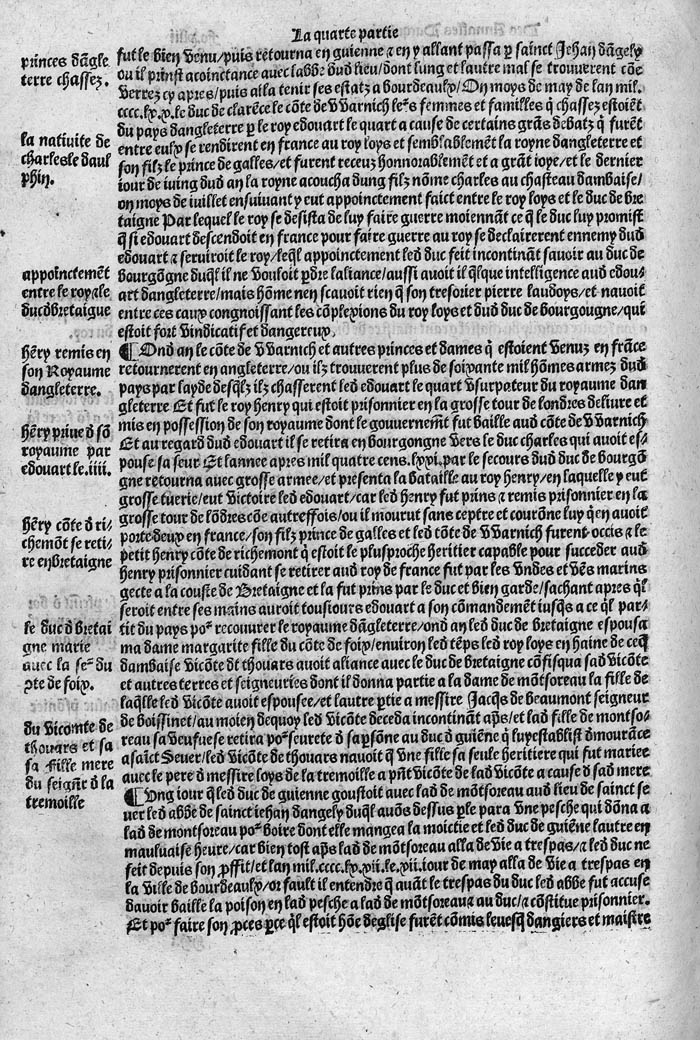 La quarte partie
princes dāgle
terre chassez.
la nativite de
charles le daul
phin.
appoinctemēt
entre le roy ⁊ le
duc dbretaigue
hēry remis en
son Royaume
dangleterre.
hēry priue d̄ sō
royaume par
edouart le.iiii.
hēry cōte d̄ ri-
chemōt se reti-
re en bretaigne
le duc d̄ bretai
gne marie
auec la seʳ du
ꝯte de foix.
du vicomte de
thouars et sa
sa fille mere
du seignr̄ d̄ la
tremoille
fut le bien venu/puis retourna en guienne ⁊ en y allant passa ꝑ sainct Jehan dāgely
ou il prinst acoinctance avec labbe dud lieu/dont lung et lautre mal se trouuerent cōe
verrez cy apres/puis alla tenir ses estatz a bourdeaulx/On moys de may de lan mil.
cccc.lx.x.le duc de clarēce le cōte de vvarnich leᵗˢ femmes et familles q̄ chassez estoiēt
du pays dangleterre ꝑ le roy edouart le quart a cause de certains grās debatz q̄ furēt
entre eulx se rendirent en france au roy loys et semblablemēt la royne dangleterre et
son filz le prince de galles/et furent receuz honnorablemēt et a grāt ioye/et le dernier
iour de iuing dud an la royne acoucha dung filz nōme charles au chasteau dambaise/
on moys de iuillet ensuiuant y eut appoinctement faict entre le roy loys et le duc de bre
taigne Par lequel le roy se desista de luy faire guerre moiennāt ce q̄ le duc luy promist
q̄ si edouart descendoit en france pour faire guerre au roy se declaireroit ennemy dud
edouart ⁊ seruiroit le roy/leql̄ appoinctement led duc feit incontināt sauoir au duc de
bourgōgne duql̄ il ne vouloit ꝑdre laliance/aussi auoit il ql̄que intelligence aud edou-
art dangleterre/mais hōme nen scauoit rien q̄ son tresorier pierre laudoys/et nauoit
entre ces eaux congnoissant les cōplexions du roy loys et dud duc de bourgougne/qui
estoit fort vindicatif et dangereux.
¶Ond an le cōte de vvarnich et autres princes et dames q̄ estoient venuz en frāce
retournerent en angleterre/ou ilz trouuerent plus de soixante mil hōmes armez dud
pays par layde desq̄lz ilz chasserent led edouart le quart vsurpateur du royaume dan
gleterre Et fut le roy henry qui estoit prisonnier en la grosse tour de londres deliure et
mis en possession de son royaume dont le gouuernemēt fut baille aud cōte de vvarnich
Et au regard dud edouart il se retira en bourgongne vers le duc charles qui auoit es-
pouse sa seur Et lannee apres mil quatre cens.lxxi.par le secours dud duc de bourgō
gne retourna auec grosse armee/et presenta la bataille au roy henry/en laquelle y eut
grosse tuerie/eut victoire led edouart/car led henry fut prins ⁊ remis prisonnier en la
grosse tour de lōdres cōe autreffois/ou il mourut sans ceptre et courōne luy q̄ en auoit
porte deux en france/son filz prince de galles et led cōte de vvarnich furent occis ⁊ le
petit henry cōte de richemont q̄ estoit le plus proche heritier capable pour succeder aud
henry prisonnier cuidant se retirer aud roy de france fut par les vndes et vēs marins
gecte a la couste de Bretaigne et la fut prins par le duc et bien garde/sachant apres ql̄
seroit entre ses mains auroit tousiours edouart a son cōmandement iusq̄s a ce ql̄ par-
tit du pays poʳ recouurer le royaume dāgleterre/ond an led duc de bretaigne espousa
ma dame margarite fille du cōte de foix/environ led tēps led roy loys en haine de ceq̄
dambaise vicōte dt thouars auoit aliance auec le duc de bretaigne cōfisqua sad vicōte
et autres terres et seigneuries dont il donna partie a la dame de mōtsoreau la fille de
laq̄lle led vicōte auoit espousee/et lautre ꝑtie a messire Jacq̄s de beaumont seigneur
de boissinet/au moien dequoy led vicōte deceda incontināt ap̄s/et lad fille de montso-
reau sa veufue se retira poʳ seurete d̄ sa ꝑsōne au duc d̄ guiēne q̄ luy establist d̄mourāce
a saīct Seuer/led vicōte de thouars nauoit q̄ vne fille sa seule heritiere qui fut mariee
auec le pere d̄ messire loys de la tremoille a pn̄t vicōte de lad vicōte a cause d̄ sad mere
¶Ung iour q̄ led duc de guienne goustoit auec lad de mōtsoreau aud lieu de sainct se
uer led abbe de sainct iehan dangely duql̄ auōs dessus ꝑle para vne pesche qui dōna a
lad de montsoreau poʳ boire dont elle mangea la moictie et led duc de guiēne lautre en
mauluaise heure/car bien tost ap̄s lad de mōtsoreau alla de vie a trespas/⁊ led duc ne
feit depuis son ꝓffit/et lan mil.cccc.lx.xii.le.xii.iour de may alla de vie a trespas en
la ville de bourdeaulx/or fault il entendre q̄ quāt le trespas du duc led abbe fut accuse
dauoir baille la poison en lad pesche a lad de mōtsoreau ⁊ au duc/⁊ cōstitue prisonnier.
Et poʳ faire son ꝓces ꝑce ql̄ estoit hōe deglise furēt cōmis leuesq̄ dangiers et maistre